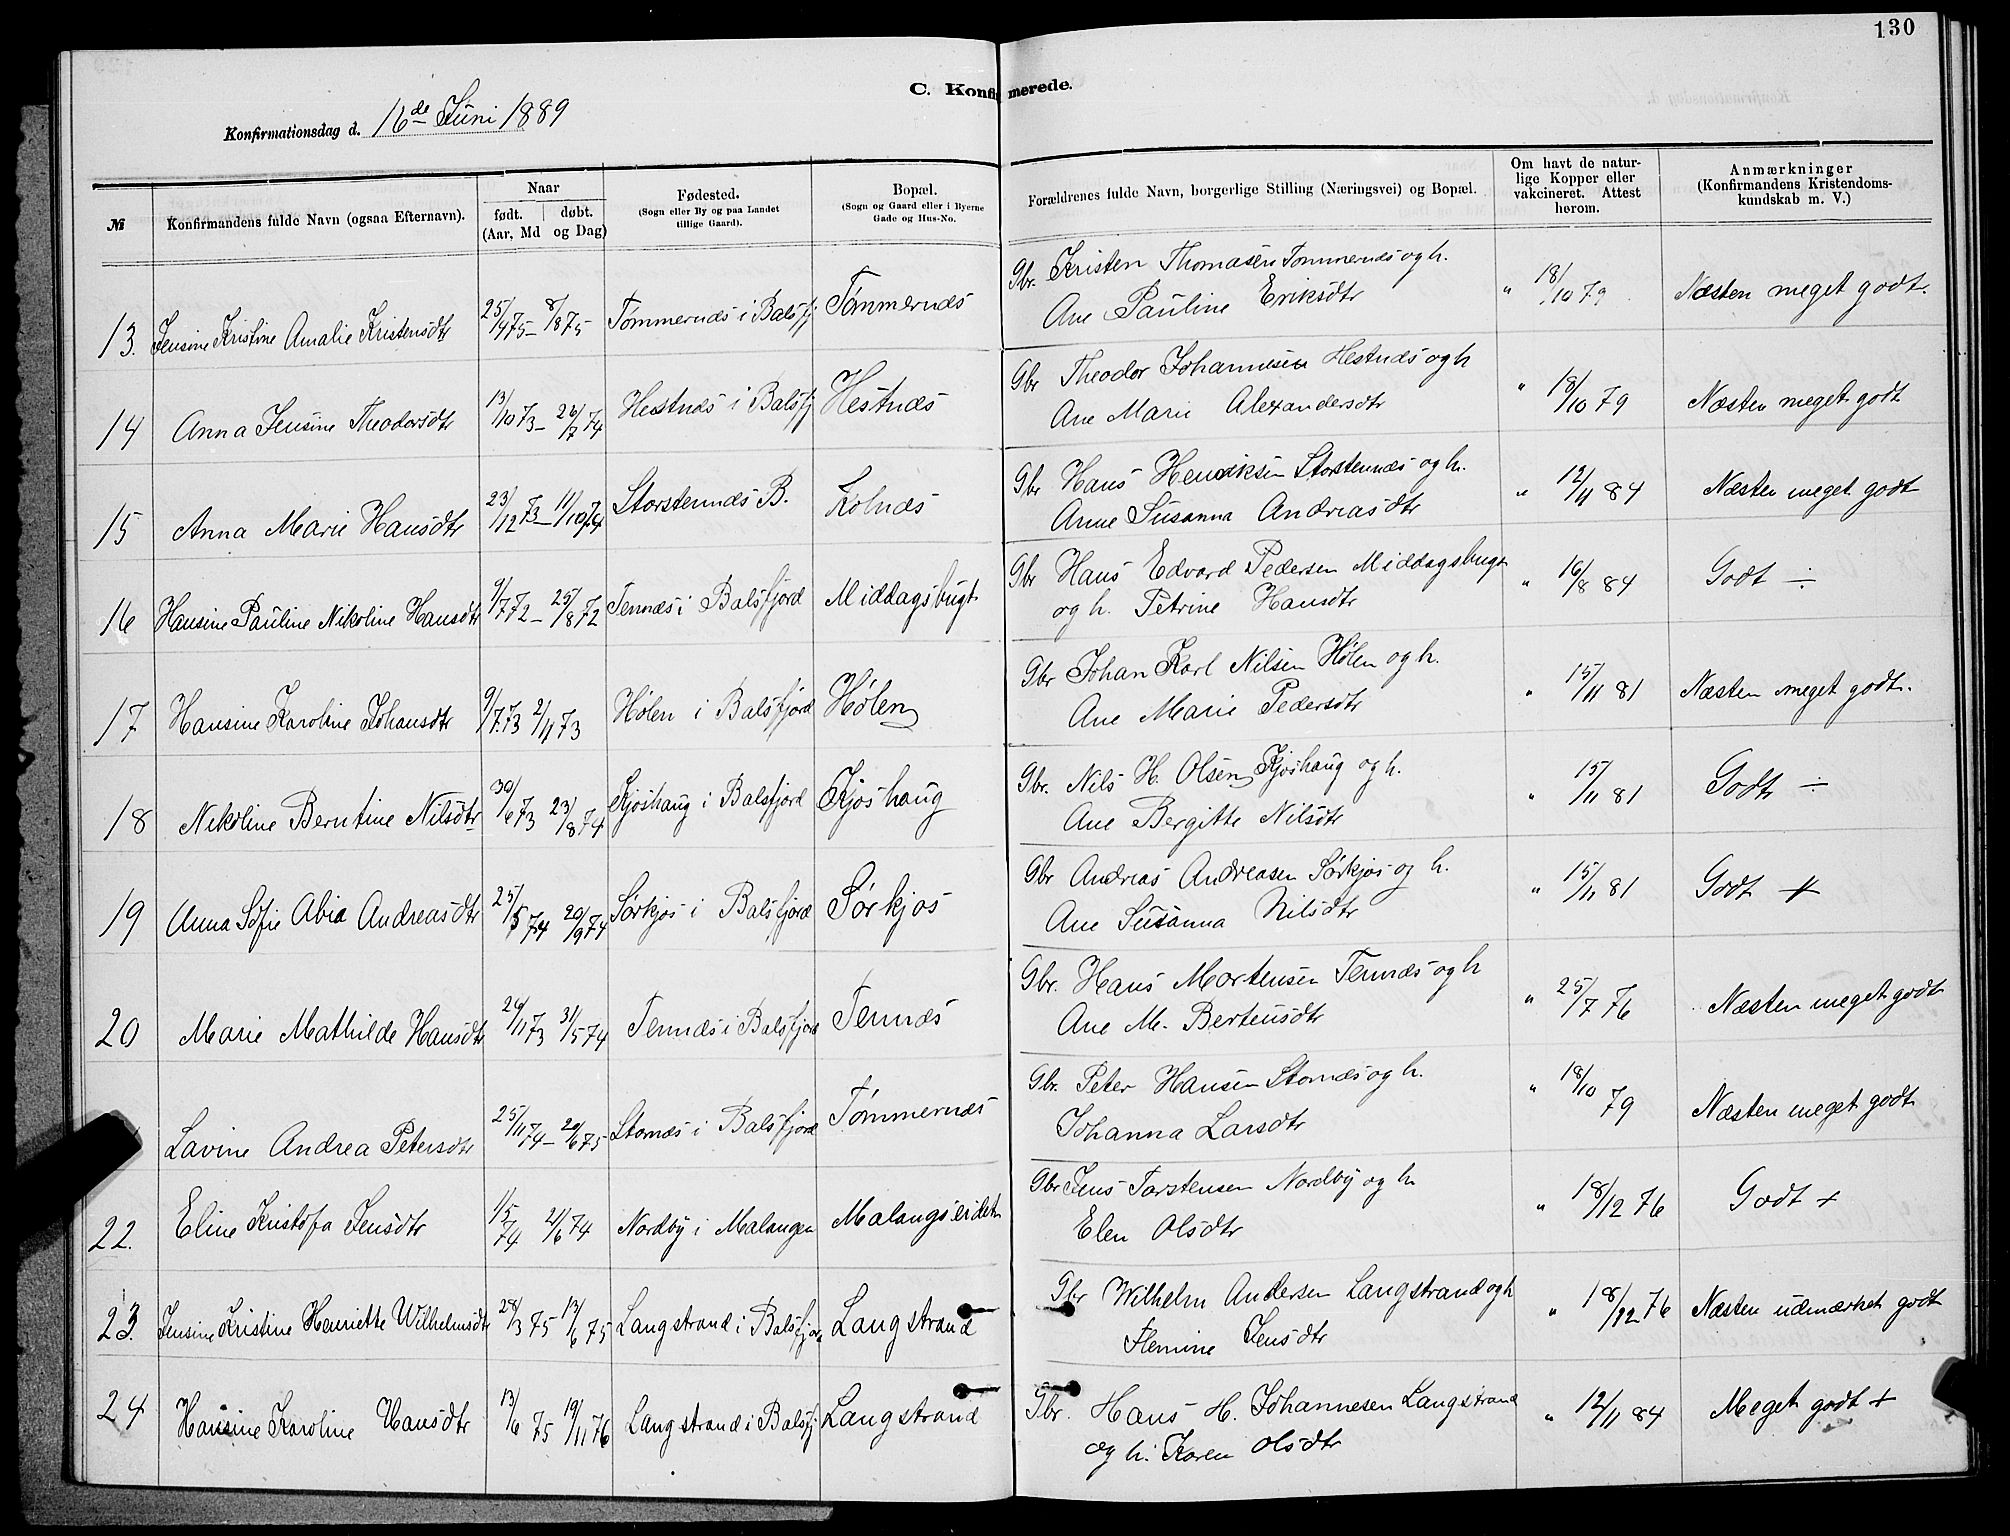 130
C. Konfirmerede.
Konfirmationsdag d. 16de Juni 1889
№ | Konfirmandens fulde Navn (ogsaa Efternavn). | Naar født. (Aar, Md | døbt. og Dag) | Fødested. (Sogn eller By og paa Landet tillige Gaard). | Bopæl. (Sogn og Gaard eller i Byerne Gade og Hus-No. | Forældrenes fulde Navn, borgerlige Stilling (Næringsvei) og Bopæl. | Om havt de naturlige Kopper eller vakcineret. Attest herom. | Anmærkninger (Konfirmandens Kristendomskundskab m. V.)
13. Jensine Kristine Amalie Kristensdtr 25/4 75 – 8/8 75 Tømmernæs i Balsfj Tømmernæs Gbr. Kristen Thomasen Tømmernæs og h. Ane Pauline Eriksdtr " 18/10 79 Næsten meget godt.
14 Anna Jensine Theodorsdtr 13/10 73 – 26/7 74 Hestnæs i Balsfj Hestnæs Gbr Theodor Johannesen Hestnæs og h Ane Marie Alexandersdtr " 18/10 79 Næsten meget godt
15 Anna Marie Hansdtr 23/12 73 – 11/10 74 Storstennæs B. Kolnæs Gbr Hans Henriksen Storstennæs og h. Anne Susanna Andreasdtr " 12/11 84 Næsten meget godt
16 Hansine Pauline Nikoline Hansdtr 9/7 72 – 25/8 72 Tennæs i Balsfjord Middagsbugt Gbr Hans Edvard Pedersen Middagsbugt og h. Petrine Hansdtr " 16/8 84 Godt ÷
17 Hansine Karoline Johansdtr 9/7 73 2/11 73 Hølen i Balsfjord Hølen Gbr Johan Karl Nilsen Hølen og h. Ane Marie Pedersdtr " 15/11 81 Næsten meget godt.
18 Nikoline Berntine Nilsdtr 30/6 73 23/8 74 Kjoshaug i Balsfjord Kjoshaug Gbr. Nils H. Olsen Kjoshaug og h. Ane Bergitte Nilsdtr " 15/11 81 Godt ÷
19 Anna Sofie Abia Andreasdtr 25/5 74 20/9 74 Sørkjos i Balsfjord Sørkjos Gbr Andreas Andreasen Sørkjos og h. Ane Susanna Nilsdtr " 15/11 81 Godt +
20 Marie Mathilde Hansdtr 26/11 73 31/5 74 Tennæs i Balsfjord Tennæs Gbr. Hans Mortensen Tennæs og h Ane M. Bertensdtr " 25/7 76 Næsten meget godt
Lavine Andrea Petersdtr 25/11 74 – 20/6 75 Stornæs i Balsfjord Tømmernæs Gbr. Peter Hansen Stornæs og h. Johanna Larsdtr " 18/10 79 Næsten meget godt
22. Eline Kristofa Jensdtr 1/5 74 21/6 74 Nordby i Malangen Malangseidet Gbr Jens Torstensen Nordby og h Elen Olsdtr " 18/12 76 Godt +
23. Jensine Kristine Henriette Wilhelmsdtr 28/3 75 13/6 75 Langstrand i Balsfjord Langstrand Gbr Wilhelm Andersen Langstrand og h Flemine Jensdtr " 18/12 76 Næsten udmærket godt
24 Hansine Karoline Hansdtr 13/6 75 19/11 76 Langstrand i Balsfj Langstrand Gbr. Hans H. Johannesen Langstrand og h. Karen Olsdtr " 12/11 84 Meget godt +